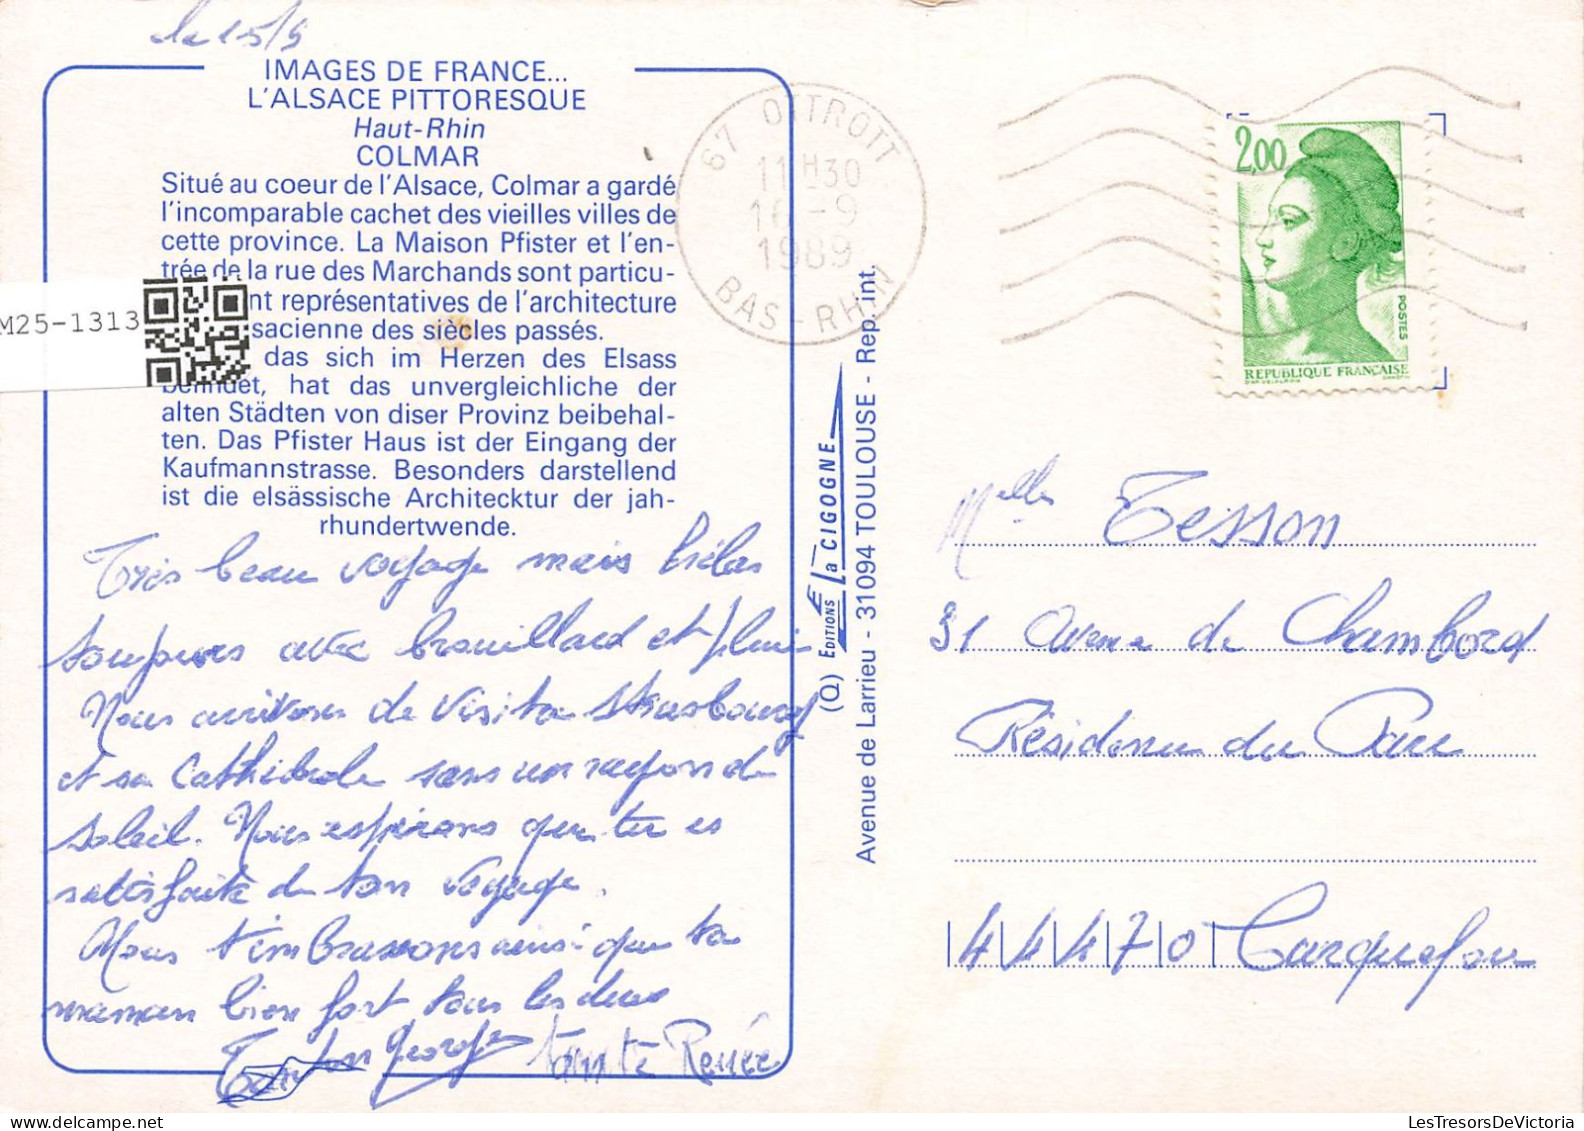 le 15/9
IMAGES DE FRANCE...
L'ALSACE PITTORESQUE
Haut-Rhin
COLMAR
Situé au coeur de l'Alsace, Colmar a gardé
l'incomparable cachet des vieilles villes de
cette province. La Maison Pfister et l'en-
trée de la rue des Marchands sont particu-
nt représentatives de l'architecture
sacienne des siècles passés.
das sich im Herzen des Elsass
befindet, hat das unvergleichliche der
alten Städten von diser Provinz beibehal-
ten. Das Pfister Haus ist der Eingang der
Kaufmannstrasse. Besonders darstellend
ist die elsässische Architecktur der jah-
rhundertwende.
M25-1313
Très beau voyage mais hélas
toujours avec brouillard et pluie
Nous arrivons de visiter Strasbourg
et sa Cathédrale sans un rayon de
soleil. Nous espérons que tu es
satisfaite de ton voyage.
Nous t'embrassons ainsi que ta
maman bien fort tous les deux
Tonton George Tante Renée
67 OTTROTT
11H30
16-9
1989
BAS-RHIN
(Q) EDITIONS La CIGOGNE
Avenue de Larrieu - 31094 TOULOUSE - Rep. int.
2,00
POSTES
REPUBLIQUE FRANÇAISE
Melle Tesson
31 Avenue de Chambord
Résidence du Parc
44470 Carquefou
LesTresorsDeVictoria